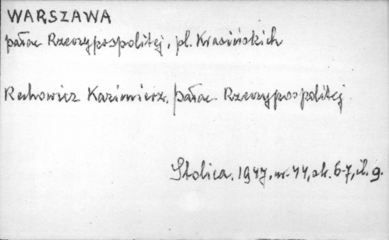 WARSZAWA
pałac Rzeczypospolitej, pl. Krasińskich
Kazimierz, pałac Rzeczypospolitej
Stolica, 1947, nr. 44, s. 6-7, il. 9.